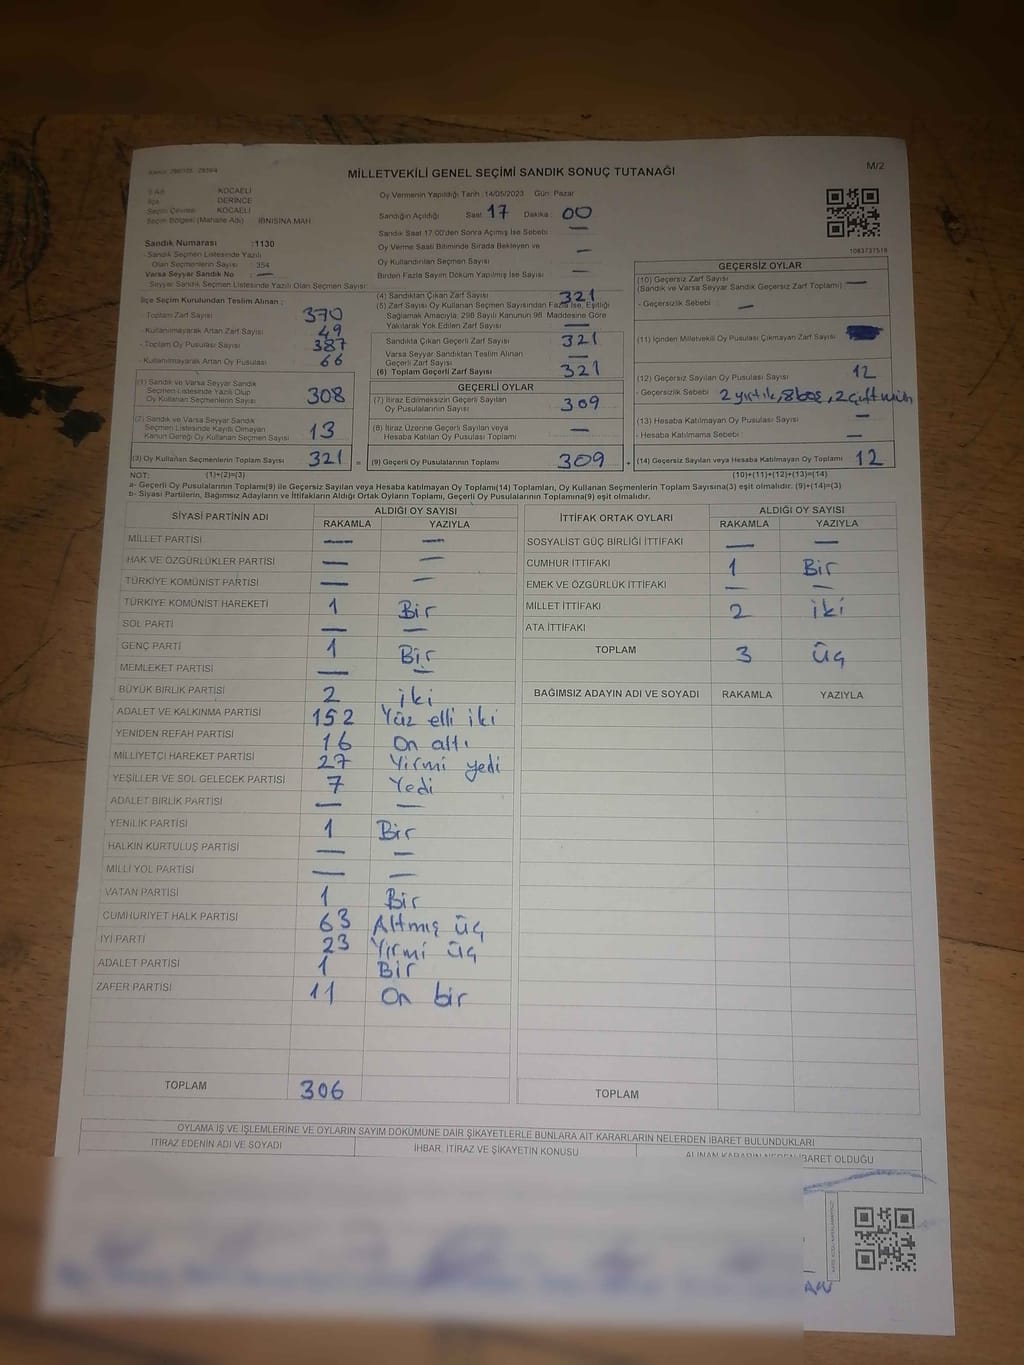 MİLLETVEKİLİ GENEL SEÇİMİ SANDIK SONUÇ TUTANAĞI
M/2
İl Adı KOCAELİ
İlçe DERİNCE
Seçim Çevresi KOCAELİ
Seçim Bölgesi (Mahalle Adı) İBNİSİNA MAH
Sandık Numarası :1130
- Sandık Seçmen Listesinde Yazılı
Olan Seçmenlerin Sayısı : 354
Varsa Seyyar Sandık No : —
Seyyar Sandık Seçmen Listesinde Yazılı Olan Seçmen Sayısı
İlçe Seçim Kurulundan Teslim Alınan :
- Toplam Zarf Sayısı 370
- Kullanılmayarak Artan Zarf Sayısı 49
- Toplam Oy Pusulası Sayısı 387
- Kullanılmayarak Artan Oy Pusulası 66
(1) Sandık ve Varsa Seyyar Sandık
Seçmen Listesinde Yazılı Olup
Oy Kullanan Seçmenlerin Sayısı 308
(2) Sandık ve Varsa Seyyar Sandık
Seçmen Listesinde Kayıtlı Olmayan
Kanun Gereği Oy Kullanan Seçmen Sayısı 13
(3) Oy Kullanan Seçmenlerin Toplam Sayısı 321 =
Oy Vermenin Yapıldığı Tarih : 14/05/2023 Gün: Pazar
Sandığın Açıldığı Saat: 17 Dakika : 00
Sandık Saat 17:00'den Sonra Açımış İse Sebebi —
Oy Verme Saati Bitiminde Sırada Bekleyen ve
Oy Kullandırılan Seçmen Sayısı —
Birden Fazla Sayım Döküm Yapılmış İse Sayısı —
(4) Sandıktan Çıkan Zarf Sayısı 321
(5) Zarf Sayısı Oy Kullanan Seçmen Sayısından Fazla İse, Eşitliği
Sağlamak Amacıyla, 298 Sayılı Kanunun 98. Maddesine Göre
Yakılarak Yok Edilen Zarf Sayısı —
Sandıkta Çıkan Geçerli Zarf Sayısı 321
Varsa Seyyar Sandıktan Teslim Alınan
Geçerli Zarf Sayısı —
(6) Toplam Geçerli Zarf Sayısı 321
GEÇERLİ OYLAR
(7) İtiraz Edilmeksizin Geçerli Sayılan
Oy Pusulalarının Sayısı 309
(8) İtiraz Üzerine Geçerli Sayılan veya
Hesaba Katılan Oy Pusulası Toplamı —
(9) Geçerli Oy Pusulalarının Toplamı 309 +
1083737518
GEÇERSİZ OYLAR
(10) Geçersiz Zarf Sayısı
(Sandık ve Varsa Seyyar Sandık Geçersiz Zarf Toplamı) —
- Geçersizlik Sebebi : —
(11) İçinden Milletvekili Oy Pusulası Çıkmayan Zarf Sayısı
(12) Geçersiz Sayılan Oy Pusulası Sayısı 12
- Geçersizlik Sebebi : 2 yırtık, 8 boş, 2 çift müh
(13) Hesaba Katılmayan Oy Pusulası Sayısı —
- Hesaba Katılmama Sebebi : —
(14) Geçersiz Sayılan veya Hesaba Katılmayan Oy Toplamı 12
NOT: (1)+(2)=(3) (10)+(11)+(12)+(13)=(14)
a- Geçerli Oy Pusulalarının Toplamı(9) ile Geçersiz Sayılan veya Hesaba katılmayan Oy Toplamı(14) Toplamları, Oy Kullanan Seçmenlerin Toplam Sayısına(3) eşit olmalıdır. (9)+(14)=(3)
b- Siyasi Partilerin, Bağımsız Adayların ve İttifakların Aldığı Ortak Oyların Toplamı, Geçerli Oy Pusulalarının Toplamına(9) eşit olmalıdır.
SİYASİ PARTİNİN ADI ALDIĞI OY SAYISI
RAKAMLA YAZIYLA
MİLLET PARTİSİ — —
HAK VE ÖZGÜRLÜKLER PARTİSİ — —
TÜRKİYE KOMÜNİST PARTİSİ — —
TÜRKİYE KOMÜNİST HAREKETİ 1 Bir
SOL PARTİ — —
GENÇ PARTİ 1 Bir
MEMLEKET PARTİSİ — —
BÜYÜK BİRLİK PARTİSİ 2 iki
ADALET VE KALKINMA PARTİSİ 152 Yüz elli iki
YENİDEN REFAH PARTİSİ 16 On altı
MİLLİYETÇİ HAREKET PARTİSİ 27 Yirmi yedi
YEŞİLLER VE SOL GELECEK PARTİSİ 7 Yedi
ADALET BİRLİK PARTİSİ — —
YENİLİK PARTİSİ 1 Bir
HALKIN KURTULUŞ PARTİSİ — —
MİLLİ YOL PARTİSİ — —
VATAN PARTİSİ 1 Bir
CUMHURİYET HALK PARTİSİ 63 Altmış üç
İYİ PARTİ 23 Yirmi üç
ADALET PARTİSİ 1 Bir
ZAFER PARTİSİ 11 On bir
TOPLAM 306
İTTİFAK ORTAK OYLARI ALDIĞI OY SAYISI
RAKAMLA YAZIYLA
SOSYALİST GÜÇ BİRLİĞİ İTTİFAKI — —
CUMHUR İTTİFAKI 1 Bir
EMEK VE ÖZGÜRLÜK İTTİFAKI — —
MİLLET İTTİFAKI 2 iki
ATA İTTİFAKI
TOPLAM 3 üç
BAĞIMSIZ ADAYIN ADI VE SOYADI RAKAMLA YAZIYLA
TOPLAM
OYLAMA İŞ VE İŞLEMLERİNE VE OYLARIN SAYIM DÖKÜMÜNE DAİR ŞİKAYETLERLE BUNLARA AİT KARARLARIN NELERDEN İBARET BULUNDUKLARI
İTİRAZ EDENİN ADI VE SOYADI İHBAR, İTİRAZ VE ŞİKAYETİN KONUSU ALINAN KARARIN NEDEN İBARET OLDUĞU